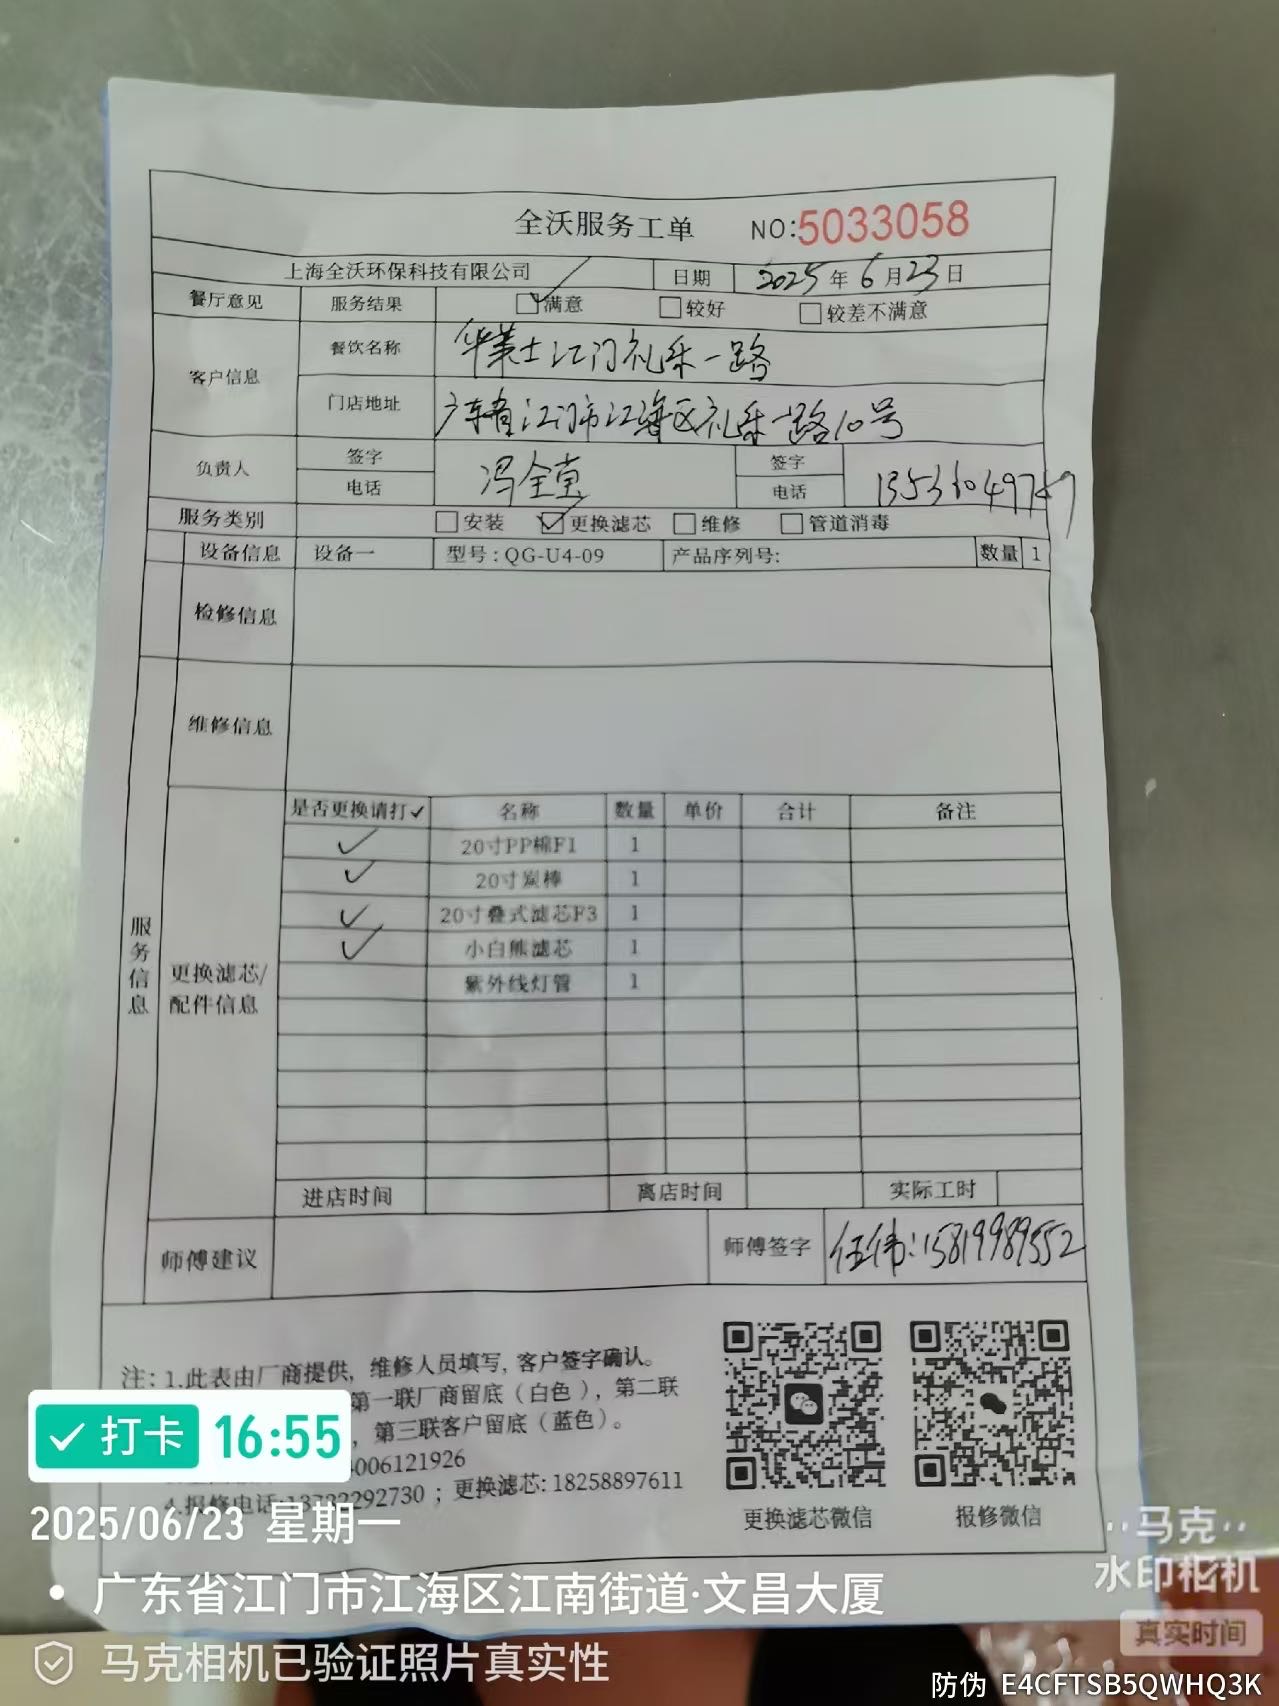 全沃服务工单 NO:5033058
上海全沃环保科技有限公司 日期 2025年6月23日
餐厅意见 服务结果 满意 较好 较差不满意
客户信息 餐饮名称 华莱士江门礼乐一路
门店地址 广东省江门市江海区礼乐一路10号
负责人 签字 冯全 签字
电话 电话
服务类别 安装 更换滤芯 维修 管道消毒
设备信息 设备一 型号：QG-U4-09 产品序列号: 数量 1
检修信息
维修信息
服务信息
更换滤芯/
配件信息
是否更换请打✓ 名称 数量 单价 合计 备注
✓ 20寸PP棉F1 1
✓ 20寸炭棒 1
✓ 20寸叠式滤芯F3 1
✓ 小白熊滤芯 1
紫外线灯管 1
进店时间 离店时间 实际工时
师傅建议 师傅签字 任伟:15819989552
注: 1.此表由厂商提供, 维修人员填写, 客户签字确认。
第一联厂商留底（白色）, 第二联
, 第三联客户留底（蓝色）。
006121926
4.报修电话: 292730 ；更换滤芯: 18258897611
更换滤芯微信 报修微信
打卡 16:55
2025/06/23 星期一
广东省江门市江海区江南街道·文昌大厦
马克相机已验证照片真实性
马克
水印相机
真实时间
防伪 E4CFTSB5QWHQ3K